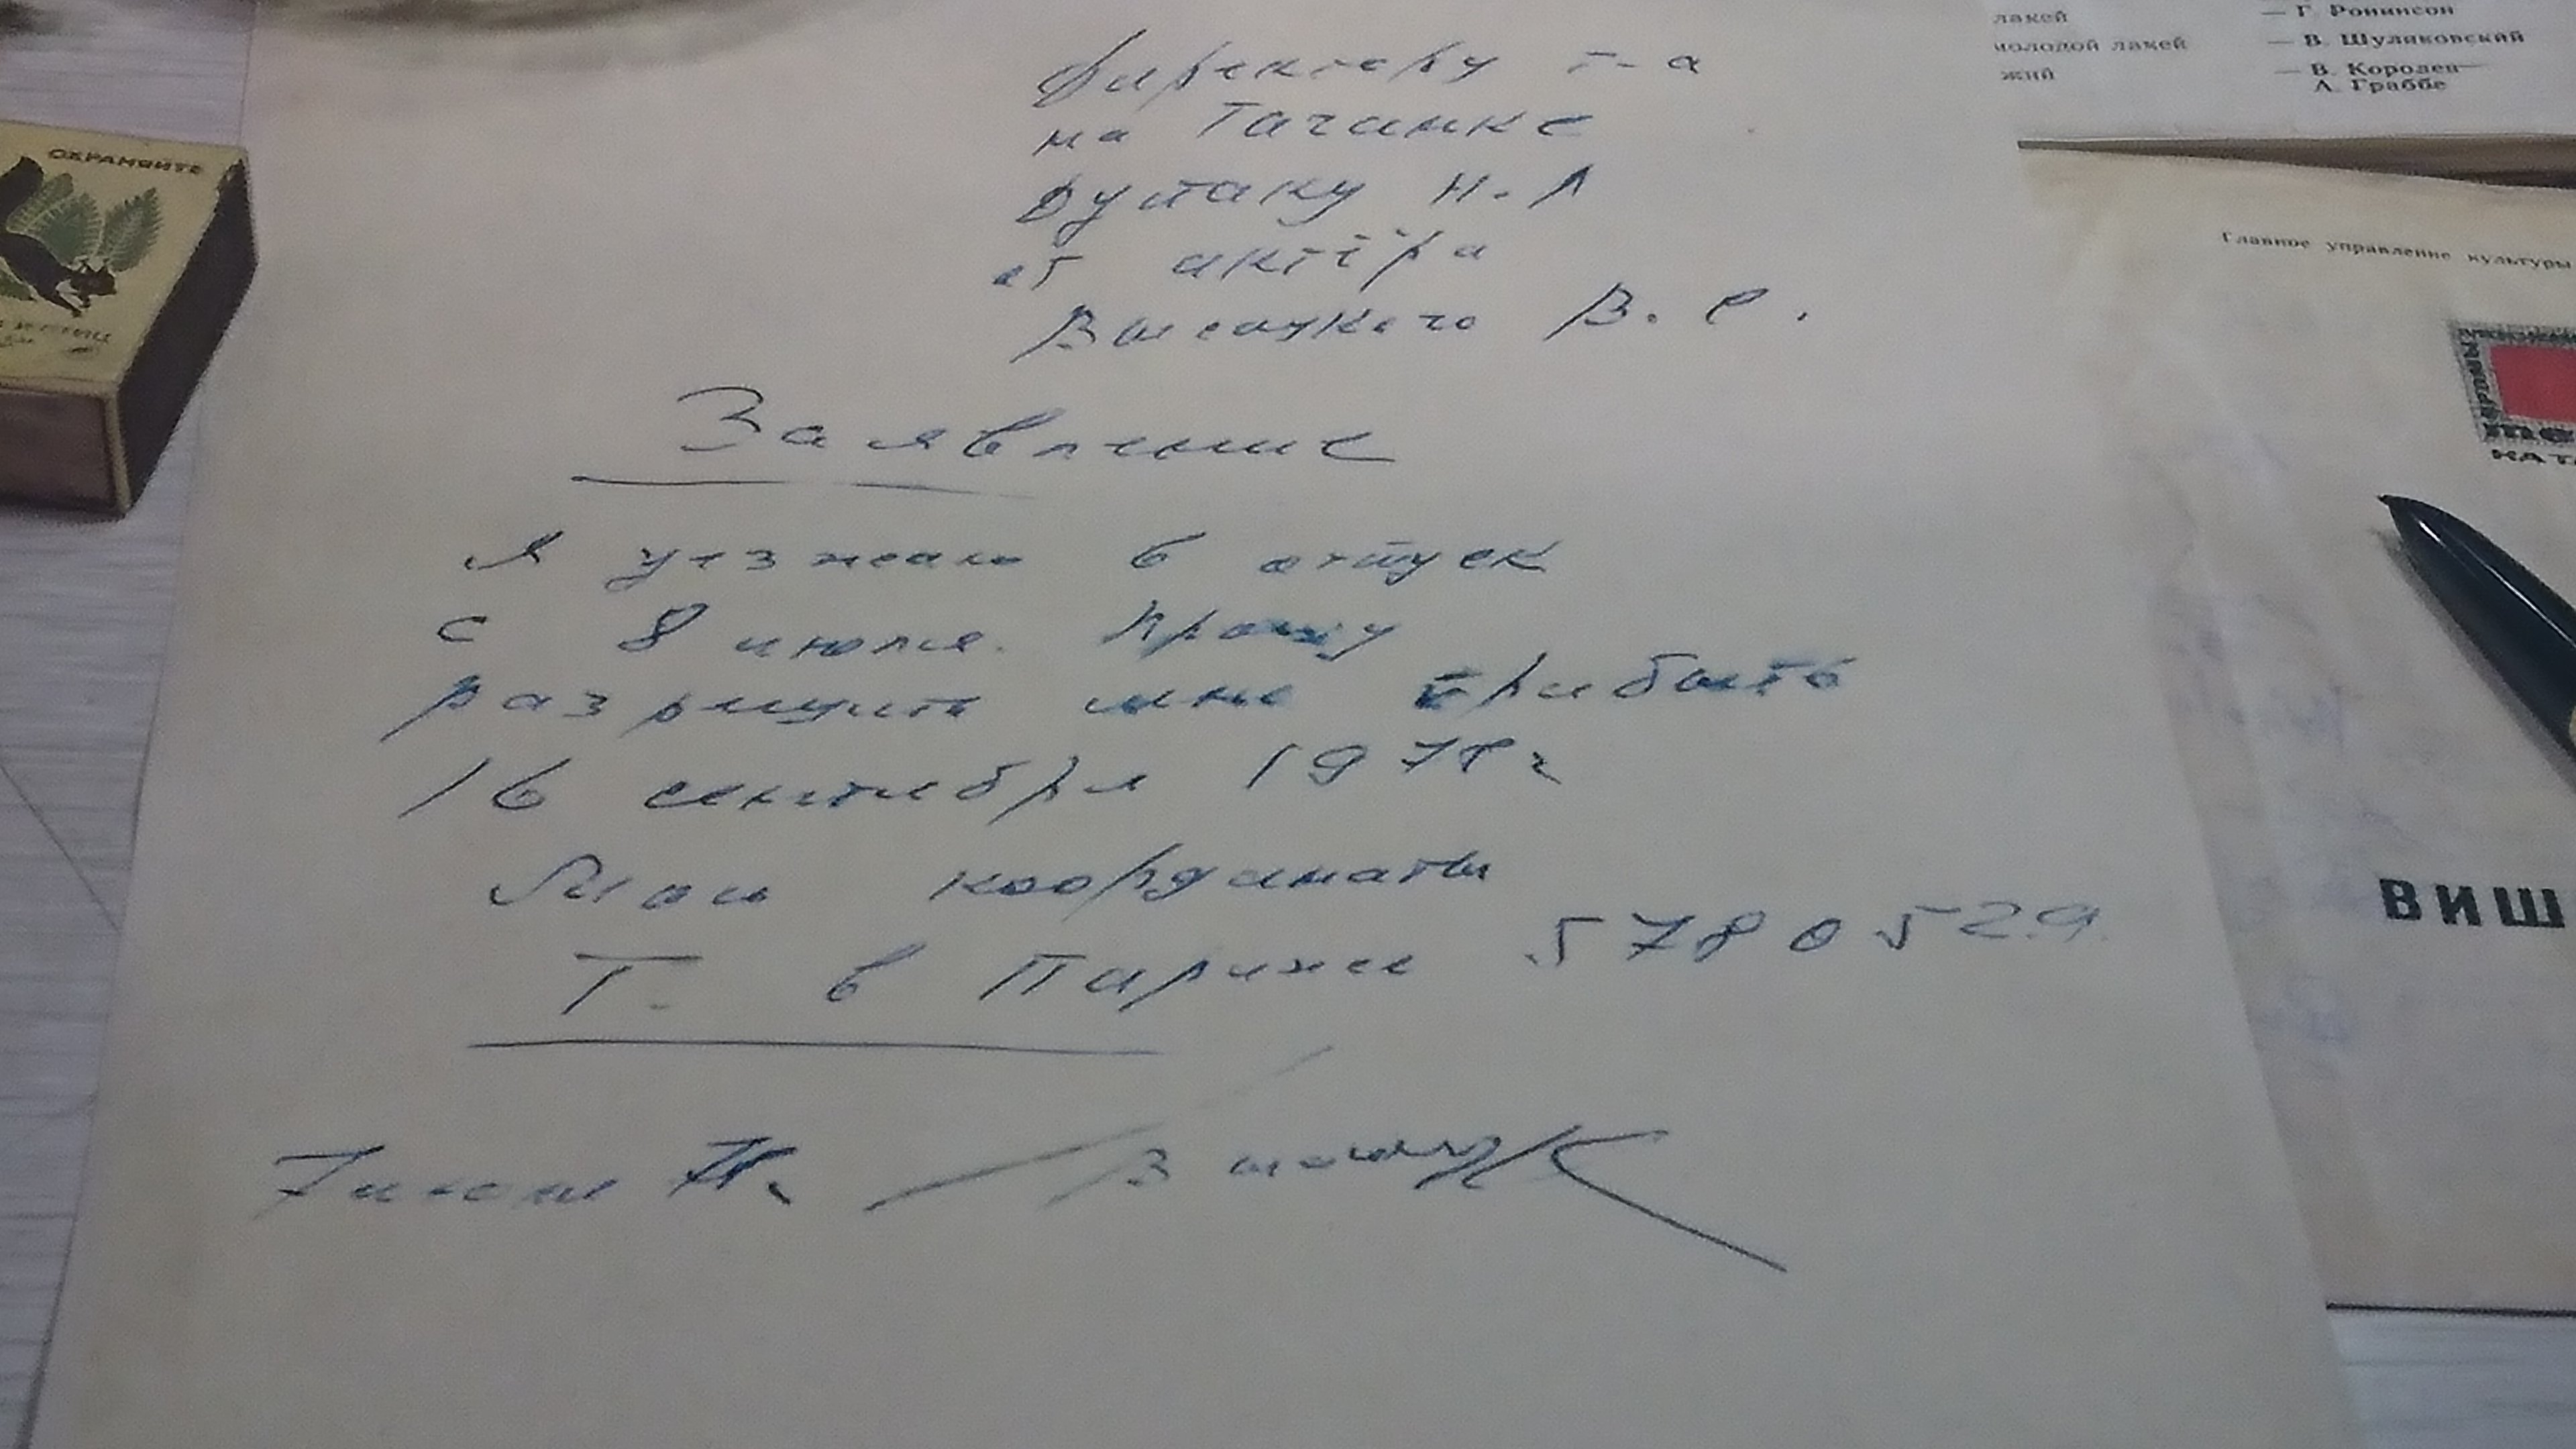 лакей — Г. Ронинсон
молодой лакей — В. Шуляковский
— В. Королев
Л. Граббе
Директору т-а
на Таганке
Дупаку Н. Л
от актёра
Высоцкого В. С.
ОХРАНЯЙТЕ
Главное управление культуры
Заявление
Я уезжаю в отпуск
с 8 июля. Прошу
разрешить мне прибыть
16 сентября 1978 г
Мои координаты
Т. в Париже 5780529
ВИШ
78 г. Высоцк